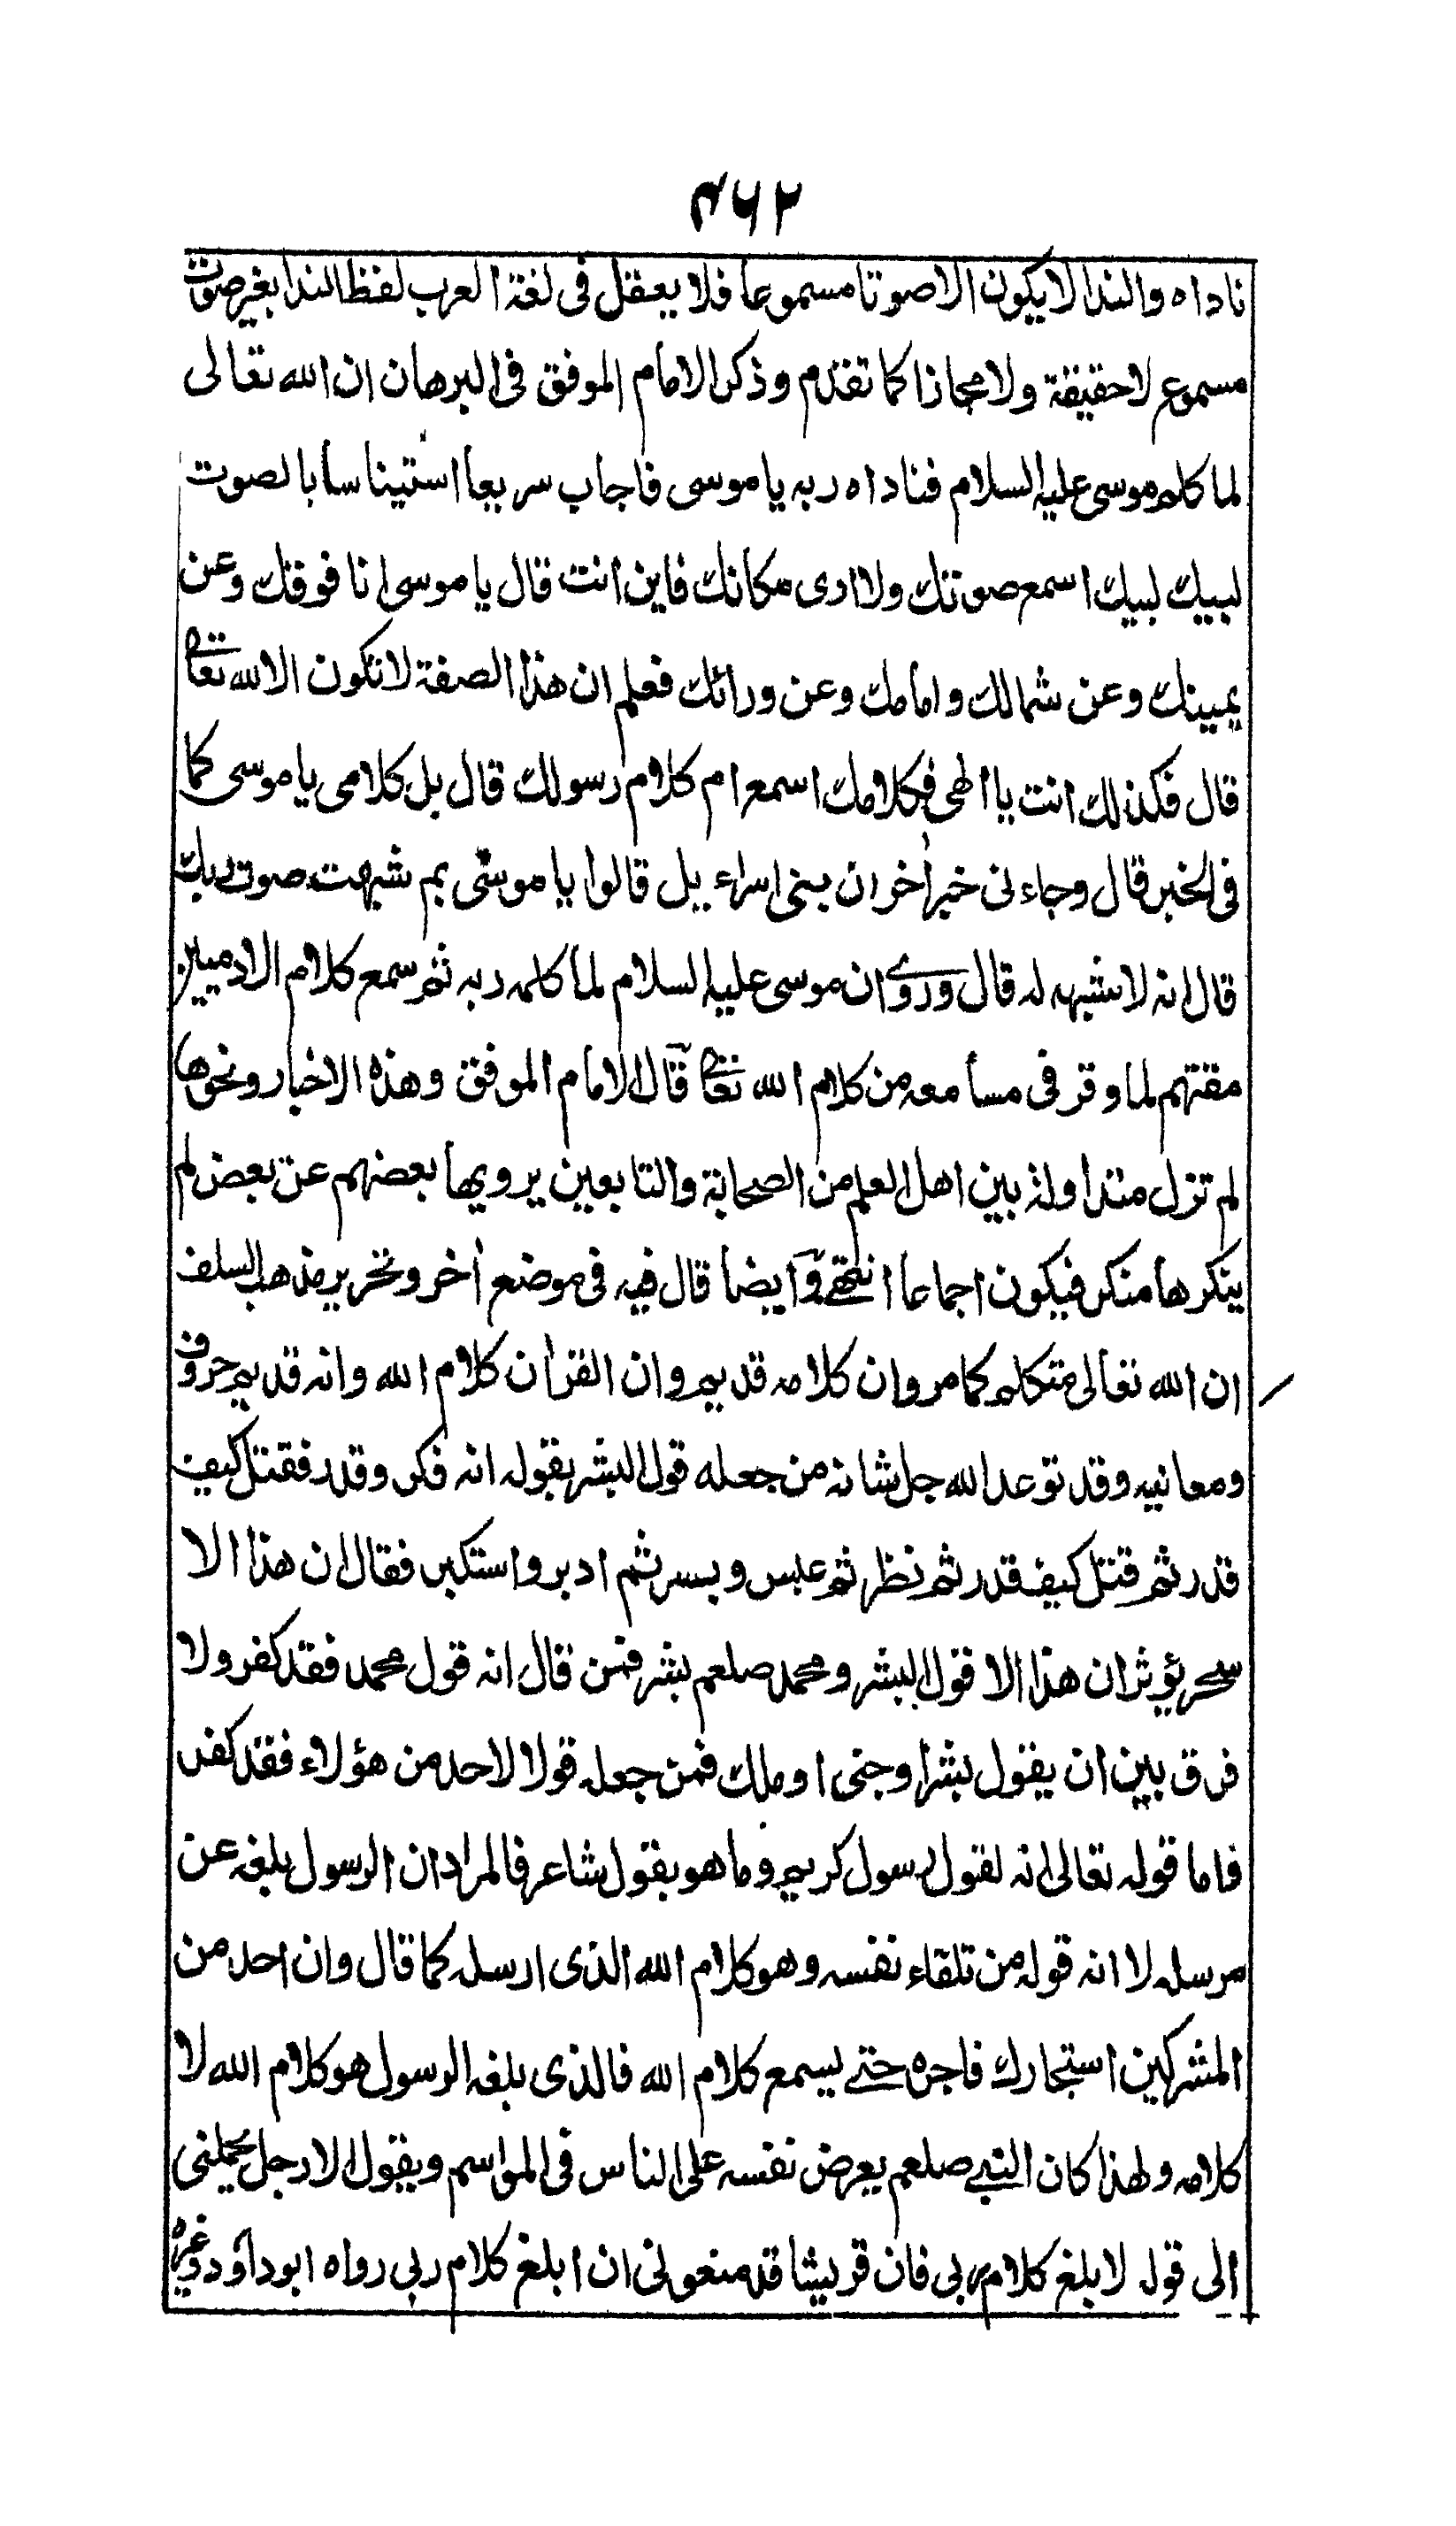 ۴۶۲
ناداه والندا لا يكون الا صوتا مسموعا فلا يعقل فى لغة العرب لفظ الندا بغير صوت
مسموع لا حقيقة ولا مجازا كما تقدم وذكر الامام الموفق فى البرهان ان الله تعالى
لما كلم موسى عليه السلام فناداه ربه يا موسى فاجاب سريعا استيناسا بالصوت
لبيك لبيك اسمع صوتك ولا ادى مكانك فاين انت قال يا موسى انا فوقك وعن
يمينك وعن شمالك وامامك وعن ورائك فعلم ان هذا الصفة لا تكون الا لله تعالى
قال فكذلك انت يا الهى فكلامك اسمع ام كلام رسولك قال بل كلامى يا موسى كما
فى الخبر قال وجاء نى خبر اٰخر ان بنى اسراءيل قالوا يا موسى بم شبهت صوت ربك
قال انه لا شبهه له قال وروى ان موسى عليه السلام لما كلمه ربه ثم سمع كلام الادميين
مقتهم لما وقر فى مسامعه من كلام الله تعالى قال الامام الموفق وهذه الاخبار ونحوها
لم تزل متداولة بين اهل العلم من الصحابة والتابعين يرويها بعضهم عن بعض لم
ينكرها منكر فيكون اجماعا انتهى وايضا قال فيه فى موضع اٰخر وتحرير مذهب السلف
ان الله تعالى متكلم كما مر وان كلامه قديم وان القراٰن كلام الله وانه قديم حروفه
ومعانيه وقد توعد الله جل شانه من جعله قول البشر بقوله انه فكر وقدر فقتل كيف
قدر ثم قتل كيف قدر ثم نظر ثم عبس وبسر ثم ادبر واستكبر فقال ان هذا الا
سحر يؤثر ان هذا الا قول البشر ومحمد صلعم بشر فمن قال انه قول محمد فقد كفر ولا
فرق بين ان يقول بشرا وجنى او ملك فمن جعله قولا لاحد من هؤلاء فقد كفر
فاما قوله تعالى انه لقول رسول كريم وما هو بقول شاعر فالمراد ان الرسول بلغه عن
مرسله لا انه قوله من تلقاء نفسه وهو كلام الله الذى ارسله كما قال وان احد من
المشركين استجارك فاجره حتى يسمع كلام الله فالذى بلغه الرسول هو كلام الله لا
كلامه ولهذا كان النبى صلعم يعرض نفسه على الناس فى المواسم ويقول الا رجل يحملنى
الى قوله لا بلغ كلام ربى فان قريشا قد منعونى ان ابلغ كلام ربى رواه ابوداؤد وغيره